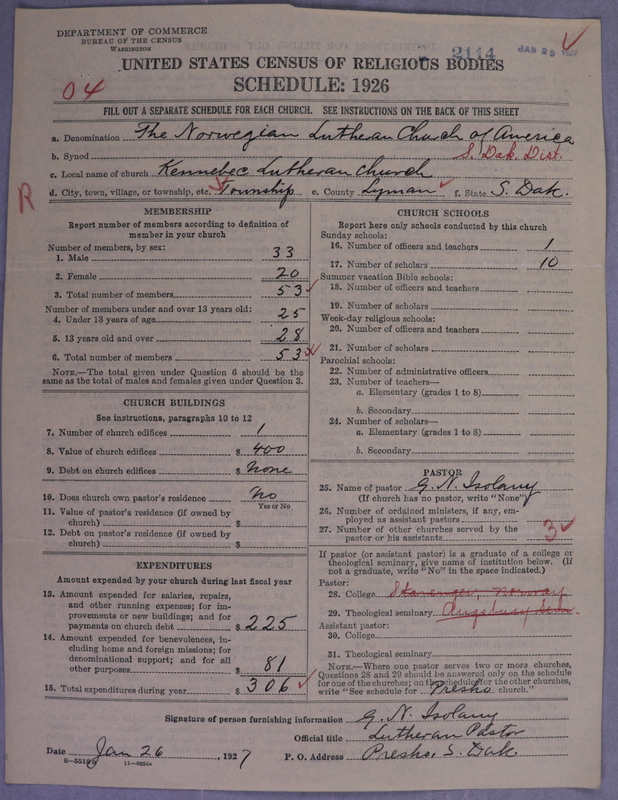 DEPARTMENT OF COMMERCE
BUREAU OF THE CENSUS
WASHINGTON
2114 JAN 29
UNITED STATES CENSUS OF RELIGIOUS BODIES
04
SCHEDULE: 1926
FILL OUT A SEPARATE SCHEDULE FOR EACH CHURCH. SEE INSTRUCTIONS ON THE BACK OF THIS SHEET
a. Denomination The Norwegian Lutheran Church of America
b. Synod S. Dak. Dist.
c. Local name of church Kennebec Lutheran Church
d. City, town, village, or township, etc. Township e. County Lyman f. State S. Dak.
R
MEMBERSHIP
Report number of members according to definition of
member in your church
Number of members, by sex:
1. Male 33
2. Female 20
3. Total number of members 53
Number of members under and over 13 years old:
4. Under 13 years of age 25
5. 13 years old and over 28
6. Total number of members 53
NOTE.—The total given under Question 6 should be
same as the total of males and females given under Question 3.
CHURCH BUILDINGS
See instructions, paragraphs 10 to 12
7. Number of church edifices 1
8. Value of church edifices $ 400
9. Debt on church edifices $ None
10. Does church own pastor's residence No
Yes or No
11. Value of pastor's residence (if owned by
church) $
12. Debt on pastor's residence (if owned by
church) $
EXPENDITURES
Amount expended by your church during last fiscal year
13. Amount expended for salaries, repairs,
and other running expenses; for im-
provements or new buildings; and for
payments on church debt $ 225
14. Amount expended for benevolences, in-
cluding home and foreign missions; for
denominational support; and for all
other purposes $ 81
15. Total expenditures during year $ 306
CHURCH SCHOOLS
Report here only schools conducted by this church
Sunday schools:
16. Number of officers and teachers 1
17. Number of scholars 10
Summer vacation Bible schools:
18. Number of officers and teachers
19. Number of scholars
Week-day religious schools:
20. Number of officers and teachers
21. Number of scholars
Parochial schools:
22. Number of administrative officers
23. Number of teachers—
a. Elementary (grades 1 to 8)
b. Secondary
24. Number of scholars—
a. Elementary (grades 1 to 8)
b. Secondary
PASTOR
25. Name of pastor G. N. Isolany
(If church has no pastor, write "None")
26. Number of ordained ministers, if any, em-
ployed as assistant pastors
27. Number of other churches served by the
pastor or his assistants 3
If pastor (or assistant pastor) is a graduate of a college or
theological seminary, give name of institution below. (If
not a graduate, write "No" in the space indicated.)
Pastor:
28. College Stavanger, Norway
29. Theological seminary Augsburg Sem.
Assistant pastor:
30. College
31. Theological seminary
NOTE.—Where one pastor serves two or more churches,
Questions 28 and 29 should be answered only on the schedule
for one of the churches; on the schedule for the other churches,
write "See schedule for Presho church."
Signature of person furnishing information G. N. Isolany
Official title Lutheran Pastor
Date Jan 26, 1927 P. O. Address Presho, S. Dak